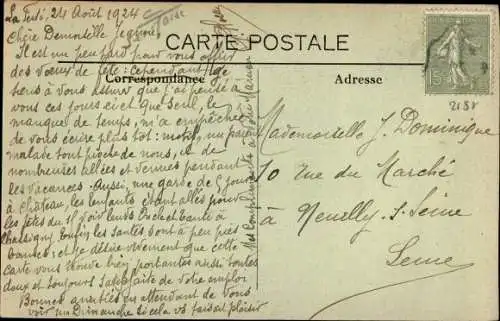 24 Août 1924
Chère Demoiselle
Il est un peu tard pour vous offrir
des vœux de fête : cependant je
tiens à vous assurer que j'ai pensé à
vous ces jours ci et que seul, le
manque de temps, m'a empêchée
de vous écrire plus tôt : un parent
malade tout proche de nous, et de
nombreuses allées et venues pendant
les vacances. Aussi, une garde de 5 jours
à Château, les enfants étant allés pour
les fêtes du
Enfin les santés sont à peu près
bonnes : et je désire vivement que cette
carte vous trouve bien portantes aussi toutes
deux et toujours satisfaite de votre emploi
Bonnes amitiés en attendant de vous
voir un Dimanche si cela vs faisait plaisir
Mes compliments à votre Maman
CARTE POSTALE
Correspondance
Adresse
15
2138
Mademoiselle J. Dominique
10 Rue du Marché
à Neuilly s. Seine
Seine